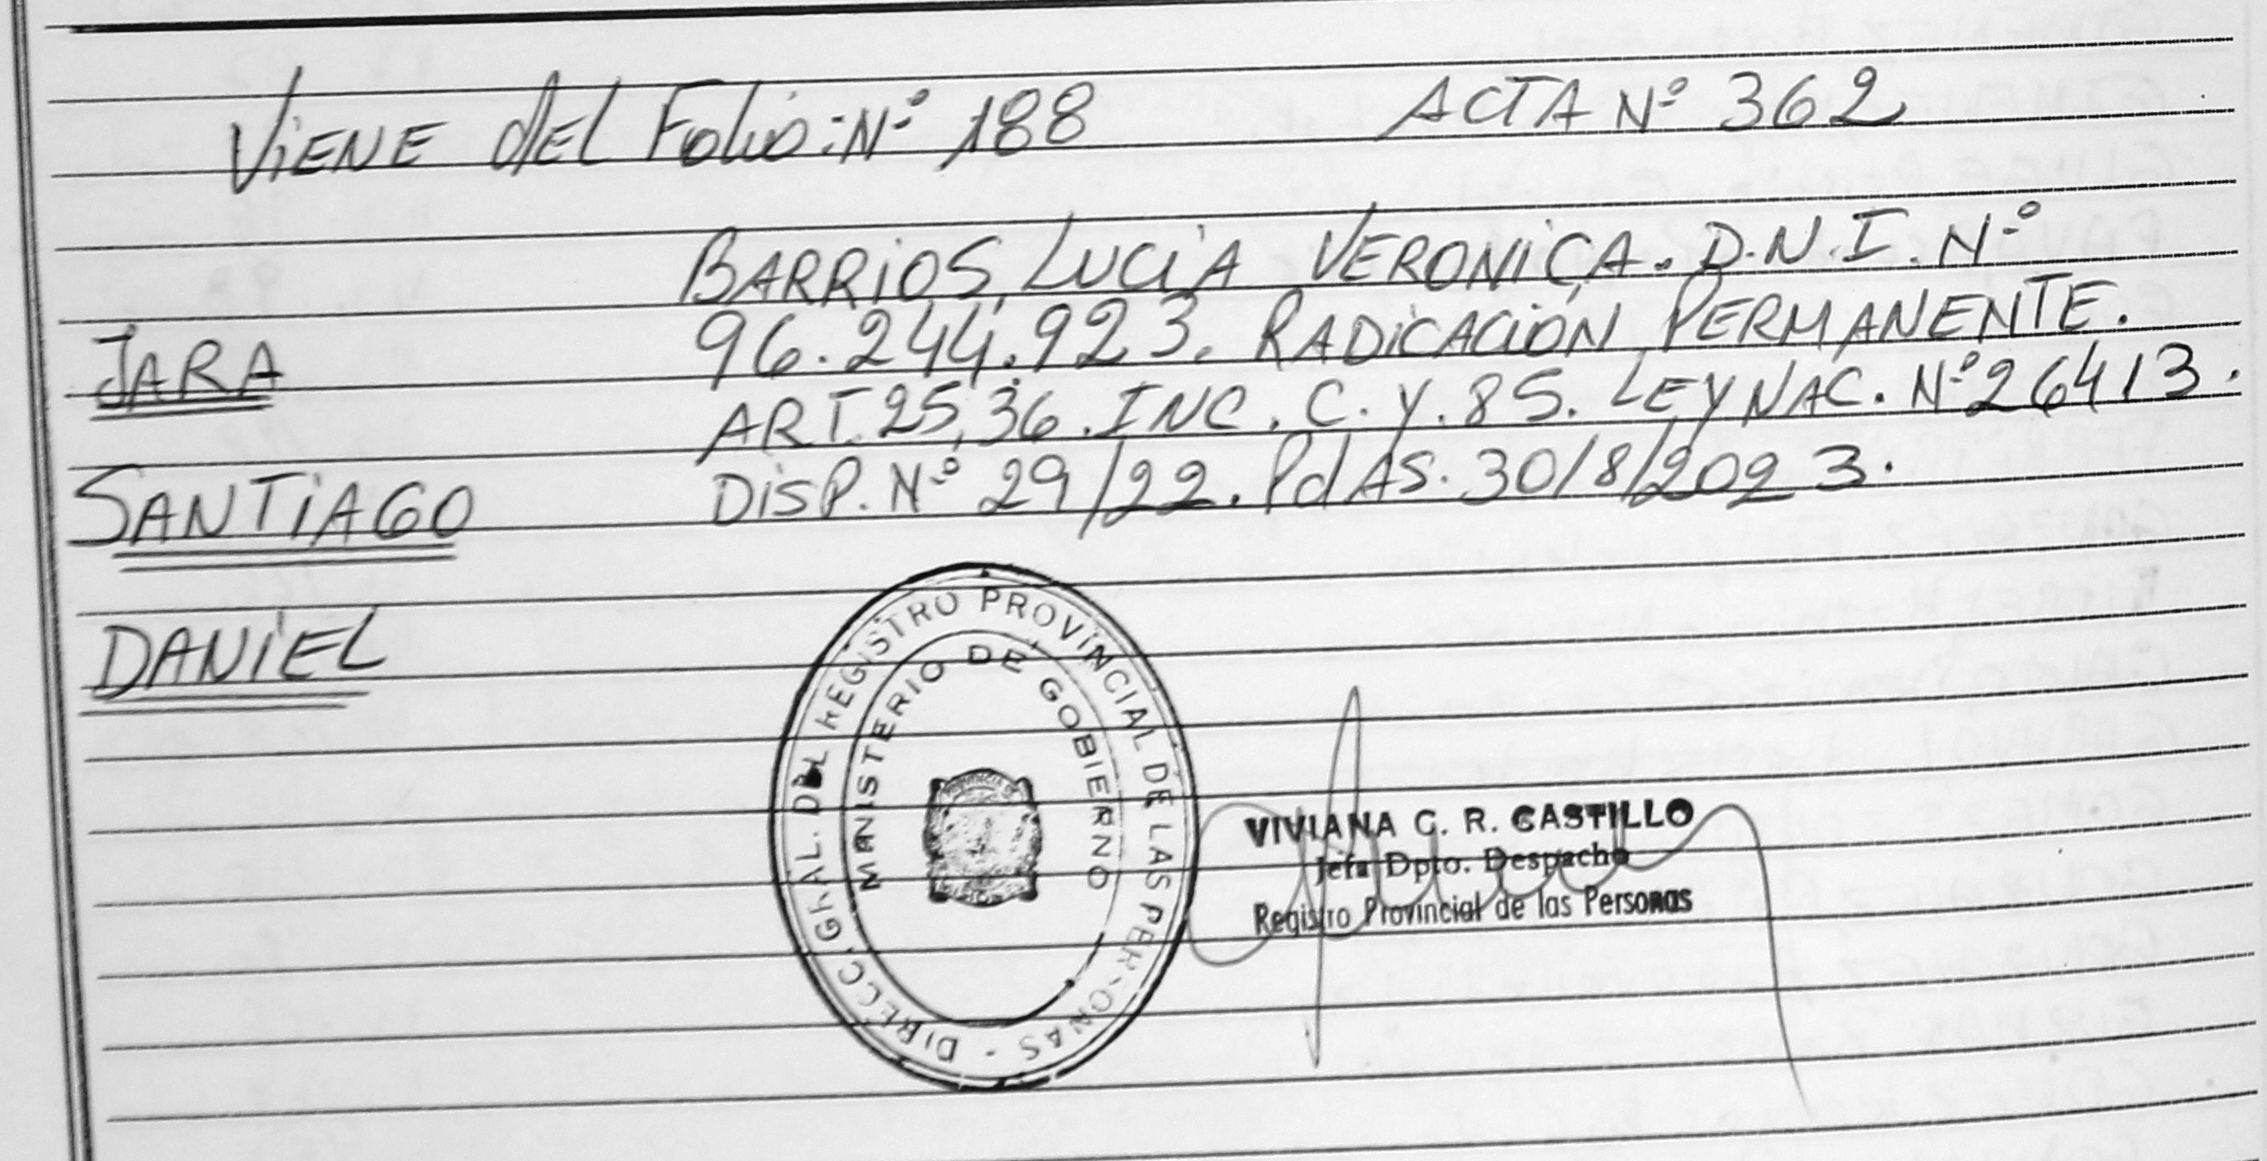 ViENE dEL Folio: Nº 188 ACTA Nº 362
BARRiOS, LUCiA VERONiCA. D.N.I. Nº
96.244.923. RADiCACiÓN PERMANENTE.
ART. 25, 36. INC. C. Y. 85. LEY NAC. Nº 26413.
DiSP. Nº 29/22. PdAS. 30/8/2023.
JARA
SANTiAGO
DANiEL
DIRECC. GRAL. DEL REGISTRO PROVINCIAL DE LAS PERSONAS -
MINISTERIO DE GOBIERNO
VIVIANA G. R. CASTILLO
Jefa Dpto. Despacho
Registro Provincial de las Personas